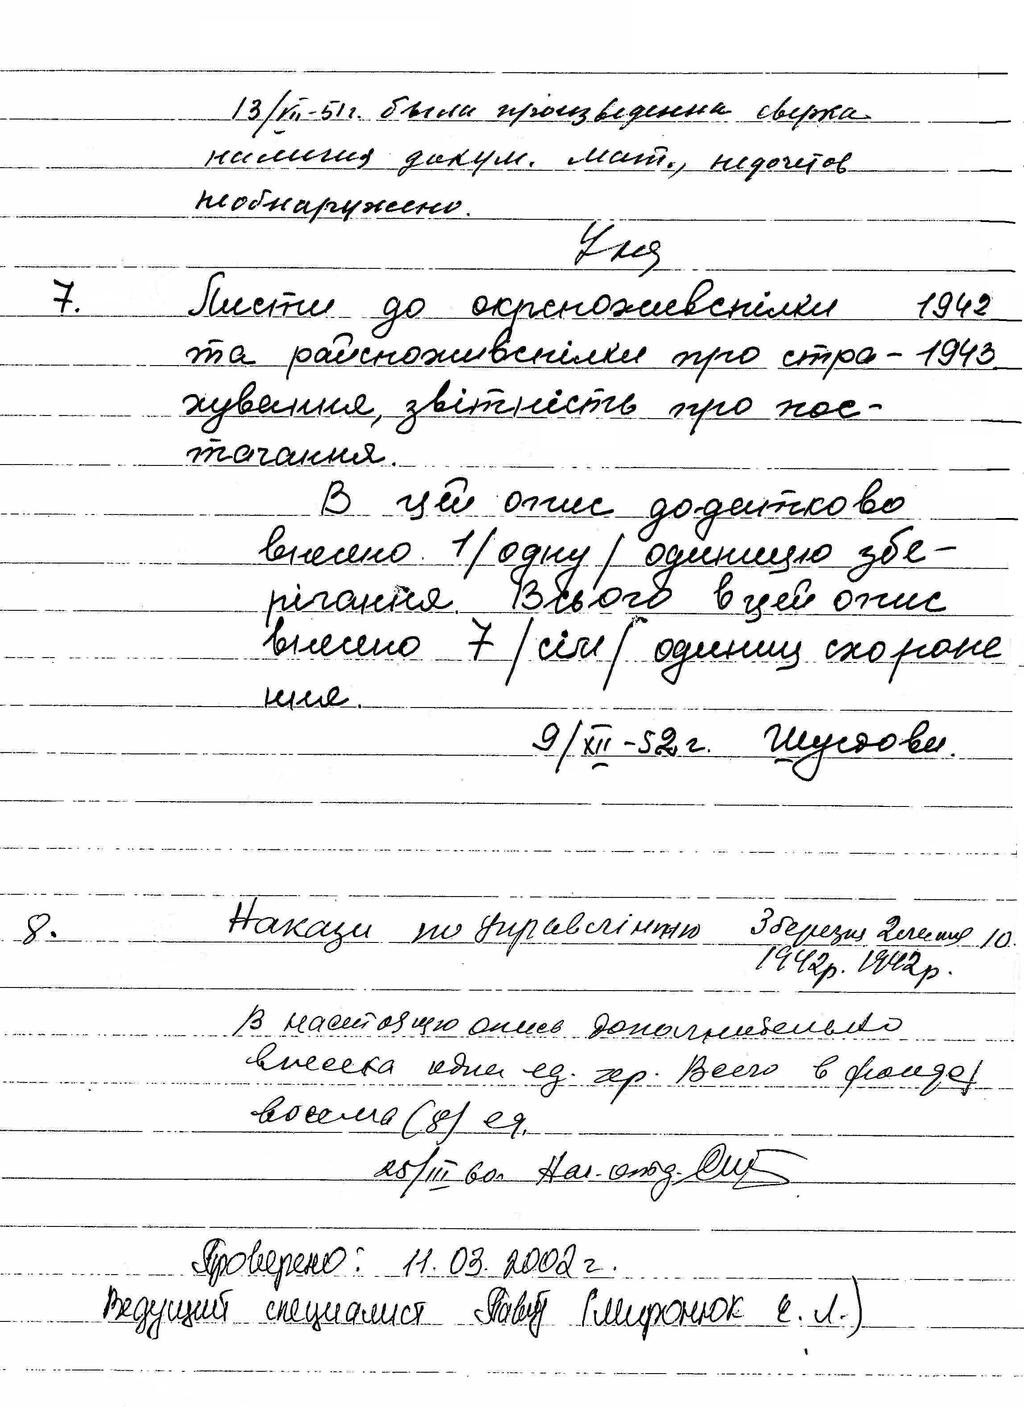 13/VII-51г. была произведенна сверка
наличия докум. мат., недочетов
необнаружено.
7. Листи до окрспоживспілки 1942
та райспоживспілки про стра- 1943
хування, звітність про пос-
тачання.
В цей опис додатково
внесено 1/одну/ одиницю збе-
рігання. Всього в цей опис
внесено 7/сім/ одиниц схороне
ння.
9/XII-52г.
8. Накази по Управлінню 3 березня 2 липня 10.
1942р. 1942р.
В настоящую опись дополнительно
внесена одна ед. хр. Всего в фонде
восемь (8) ед.
25/III 60г. Нач. отд.
Проверено: 11.03.2002г.
Ведущий специалист (Миронюк Е. Л.)